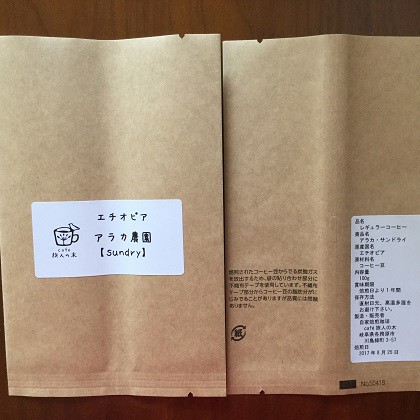 エチオピア
アラカ農園
【sundry】
cafe
旅人の木
焙煎されたコーヒー豆からでる炭酸ガス
を放出するため、袋の貼り合わせ部分に
不織布テープを使用しています。不織布
テープ部分からコーヒー豆の脂肪分がに
じみでることがありますが品質には問題
ありません。
紙
品名
レギュラーコーヒー
商品名
アラカ・サンドライ
原産国名
エチオピア
原材料名
コーヒー豆
内容量
100g
賞味期限
焙煎日より1年間
保存方法
直射日光、高温多湿を
お避け下さい。
製造・販売者
自家焙煎珈琲
café 旅人の木
岐阜県各務原市
川島緑町 3-57
焙煎日
2017年8月25日